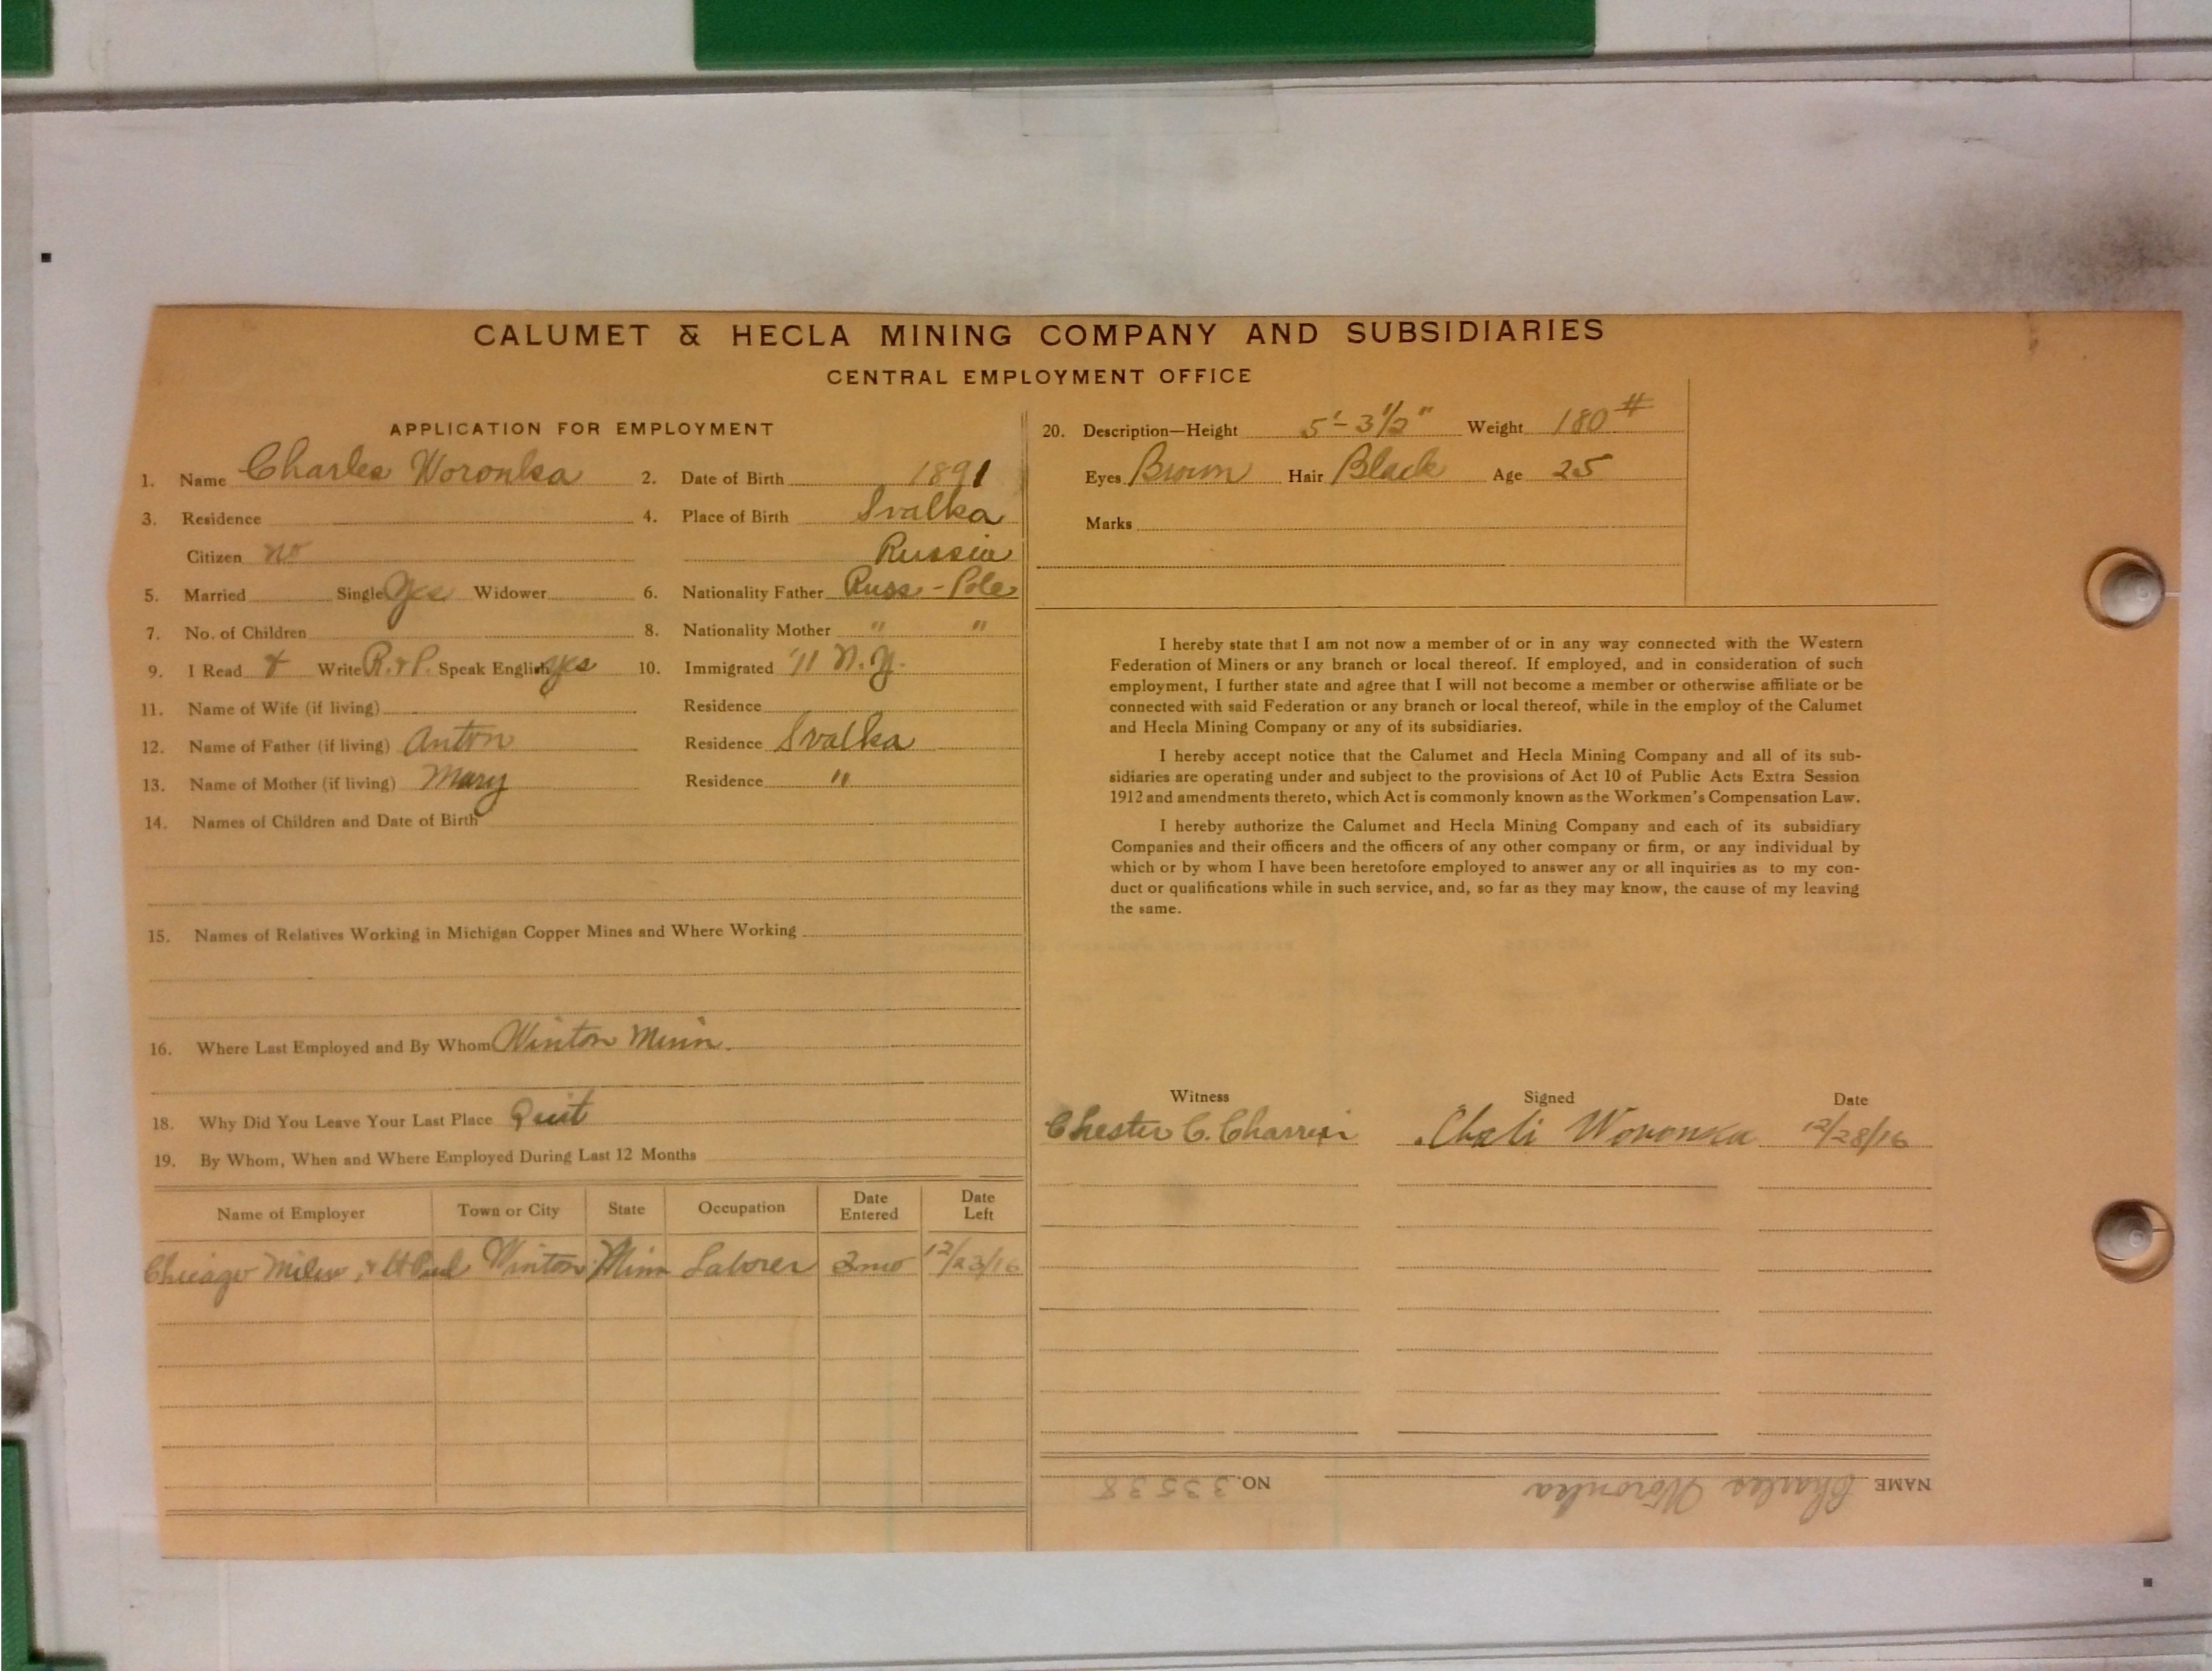 CALUMET & HECLA MINING COMPANY AND SUBSIDIARIES
CENTRAL EMPLOYMENT OFFICE
APPLICATION FOR EMPLOYMENT
1. Name Charles Woronka 2. Date of Birth 1891
3. Residence 4. Place of Birth Svalka
Citizen no Russia
5. Married Single yes Widower 6. Nationality Father Russ-Pole
7. No. of Children 8. Nationality Mother " "
9. I Read & Write R. & P. Speak English yes 10. Immigrated '11 N.Y.
11. Name of Wife (if living) Residence
12. Name of Father (if living) Anton Residence Svalka
13. Name of Mother (if living) Mary Residence "
14. Names of Children and Date of Birth
15. Names of Relatives Working in Michigan Copper Mines and Where Working
16. Where Last Employed and By Whom Winton Minn.
18. Why Did You Leave Your Last Place Quit
19. By Whom, When and Where Employed During Last 12 Months
Name of Employer Town or City State Occupation Date Entered Date Left
Chicago Milw. & St Paul Winton Minn Laborer 2mo 12/23/16
20. Description—Height 5'-3 1/2" Weight 180#
Eyes Brown Hair Black Age 25
Marks
I hereby state that I am not now a member of or in any way connected with the Western
Federation of Miners or any branch or local thereof. If employed, and in consideration of such
employment, I further state and agree that I will not become a member or otherwise affiliate or be
connected with said Federation or any branch or local thereof, while in the employ of the Calumet
and Hecla Mining Company or any of its subsidiaries.
I hereby accept notice that the Calumet and Hecla Mining Company and all of its sub-
sidiaries are operating under and subject to the provisions of Act 10 of Public Acts Extra Session
1912 and amendments thereto, which Act is commonly known as the Workmen's Compensation Law.
I hereby authorize the Calumet and Hecla Mining Company and each of its subsidiary
Companies and their officers and the officers of any other company or firm, or any individual by
which or by whom I have been heretofore employed to answer any or all inquiries as to my con-
duct or qualifications while in such service, and, so far as they may know, the cause of my leaving
the same.
Witness Signed Date
Chester C. Woronka 12/28/16
NAME Charles Woronka NO. 33538